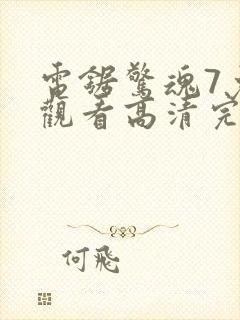 電鋸驚魂7
觀看高清完
何飛